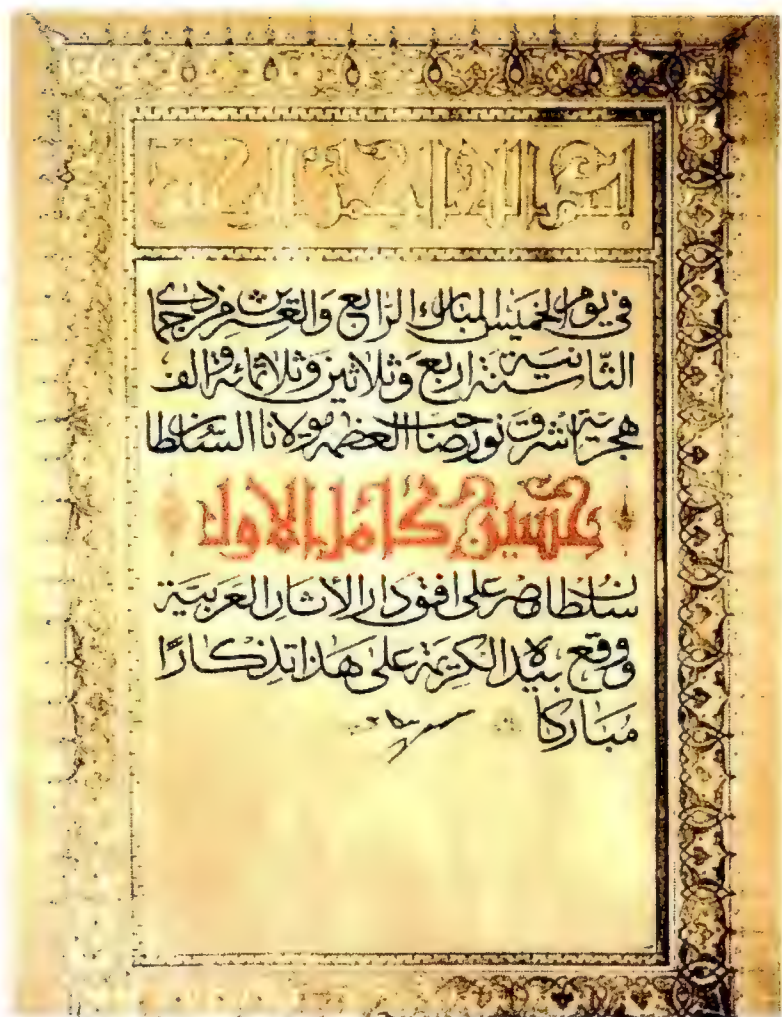 بسم الله الرحمن الرحيم
في يوم الخميس المبارك الرابع والعشرين من جمادى
الثانية سنة اربع وثلاثين وثلاثمائة والف
هجرية اشرق نور صاحب العظمة مولانا السلطان
حسين كامل الاول
سلطان مصر على افق دار الآثار العربية
ووقع بيده الكريمة على هذا تذكارًا
مباركا